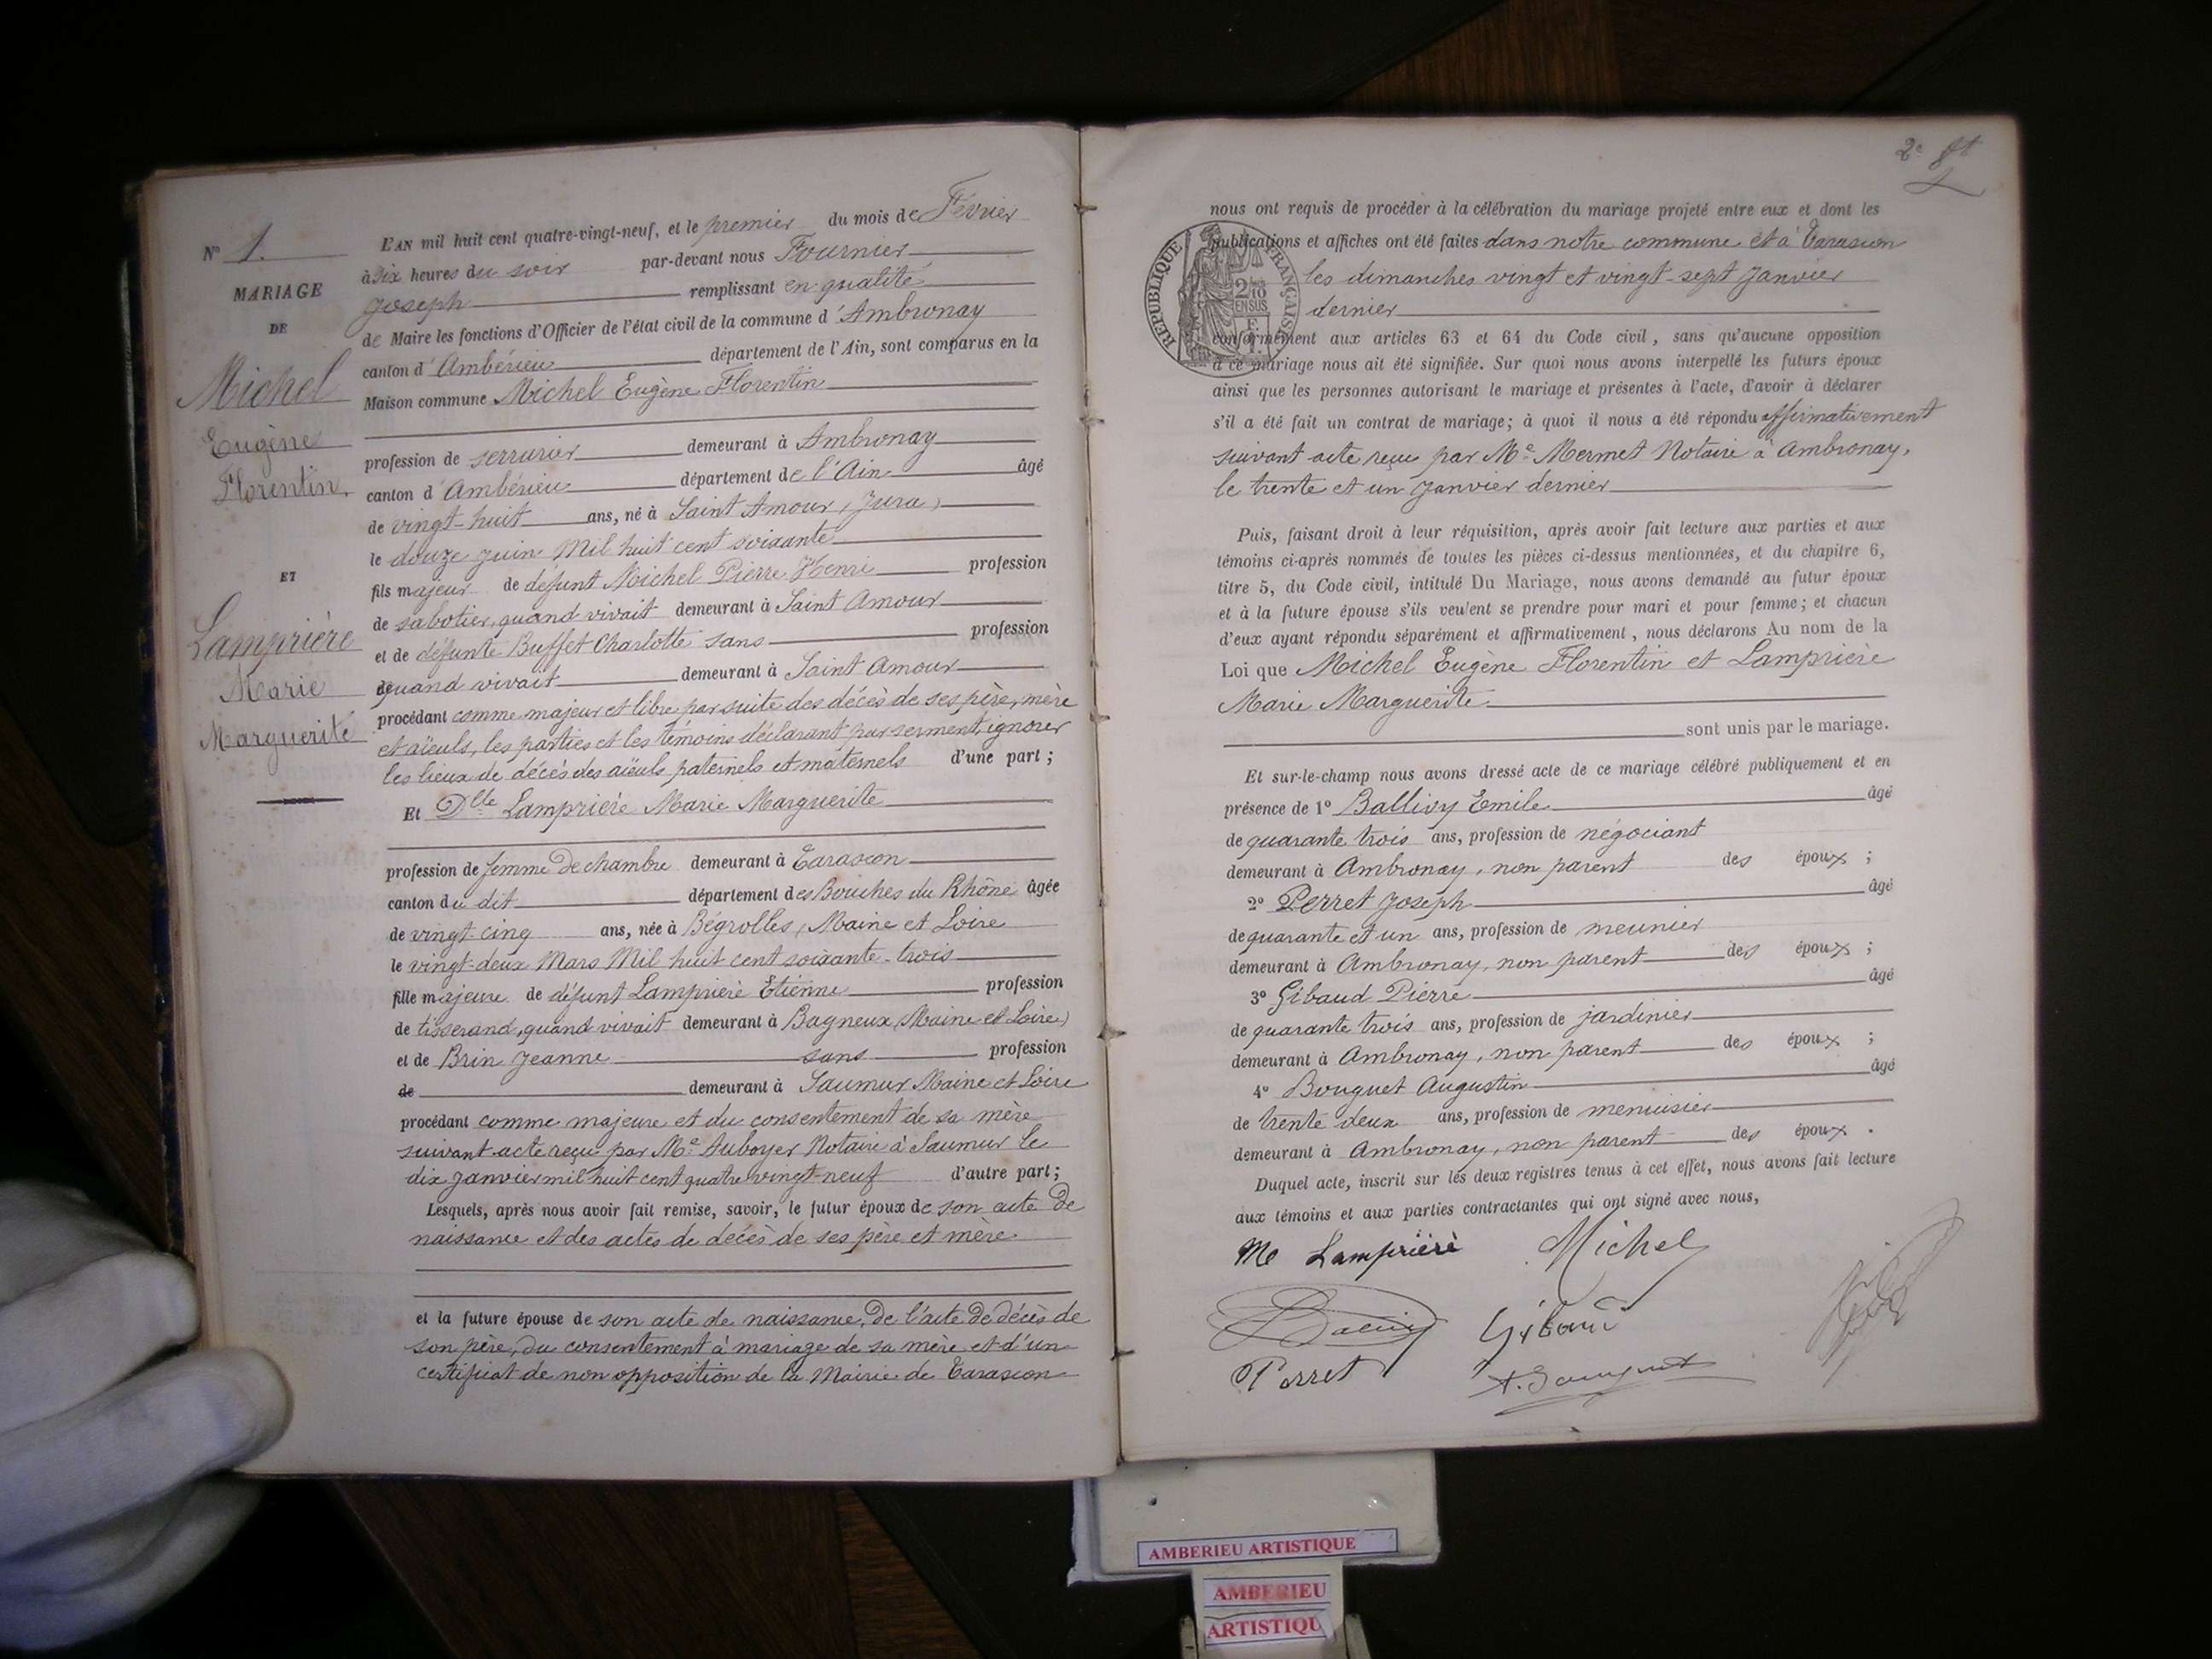 N° 1.
MARIAGE
DE
Michel
Eugène
Florentin.
ET
Lamprière
Marie
Marguerite
L'AN mil huit cent quatre-vingt-neuf, et le premier du mois de Février
à six heures du soir par-devant nous Fournier
Joseph remplissant en qualité
de Maire les fonctions d'Officier de l'état civil de la commune d'Ambronay
canton d'Ambérieu département de l'Ain, sont comparus en la
Maison commune Michel Eugène Florentin
profession de serrurier demeurant à Ambronay
canton d'Ambérieu département de l'Ain âgé
de vingt-huit ans, né à Saint Amour (Jura)
le douze juin Mil huit cent soixante
fils majeur de défunt Michel Pierre Henri profession
de sabotier, quand vivait demeurant à Saint Amour
et de défunte Buffet Charlotte sans profession
quand vivait demeurant à Saint Amour
procédant comme majeur et libre par suite des décès de ses père, mère
et aïeuls, les parties et les témoins déclarant par serment, ignorer
les lieux de décès des aïeuls paternels et maternels d'une part ;
Et Dlle Lamprière Marie Marguerite
profession de femme de chambre demeurant à Tarascon
canton du dit département des Bouches du Rhône âgée
de vingt-cinq ans, née à Bégrolles, Maine et Loire
le vingt-deux Mars Mil huit cent soixante-trois
fille majeure de défunt Lamprière Etienne profession
de tisserand, quand vivait demeurant à Bagneux (Maine et Loire)
et de Brin Jeanne sans profession
de demeurant à Saumur Maine et Loire
procédant comme majeure et du consentement de sa mère
suivant acte reçu par Me Auboyer Notaire à Saumur le
dix janvier mil huit cent quatre vingt-neuf d'autre part ;
Lesquels, après nous avoir fait remise, savoir, le futur époux de son acte de
naissance et des actes de décès de ses père et mère
et la future épouse de son acte de naissance, de l'acte de décès de
son père, du consentement à mariage de sa mère et d'un
certificat de non opposition de la Mairie de Tarascon
2e
nous ont requis de procéder à la célébration du mariage projeté entre eux et dont les
publications et affiches ont été faites dans notre commune et à Tarascon
les dimanches vingt et vingt-sept janvier
dernier
RÉPUBLIQUE FRANÇAISE
2/10
EN SUS
conformément aux articles 63 et 64 du Code civil, sans qu'aucune opposition
à ce mariage nous ait été signifiée. Sur quoi nous avons interpellé les futurs époux
ainsi que les personnes autorisant le mariage et présentes à l'acte, d'avoir à déclarer
s'il a été fait un contrat de mariage ; à quoi il nous a été répondu affirmativement
suivant acte reçu par Me Mermet Notaire à Ambronay,
le trente et un janvier dernier
Puis, faisant droit à leur réquisition, après avoir fait lecture aux parties et aux
témoins ci-après nommés de toutes les pièces ci-dessus mentionnées, et du chapitre 6,
titre 5, du Code civil, intitulé Du Mariage, nous avons demandé au futur époux
et à la future épouse s'ils veulent se prendre pour mari et pour femme ; et chacun
d'eux ayant répondu séparément et affirmativement, nous déclarons Au nom de la
Loi que Michel Eugène Florentin et Lamprière
Marie Marguerite
sont unis par le mariage.
Et sur-le-champ nous avons dressé acte de ce mariage célébré publiquement et en
présence de 1° Ballivy Emile âgé
de quarante trois ans, profession de négociant
demeurant à Ambronay, non parent des époux ;
2° Perret Joseph âgé
de quarante et un ans, profession de meunier
demeurant à Ambronay, non parent des époux ;
3° Gibaud Pierre âgé
de quarante trois ans, profession de jardinier
demeurant à Ambronay, non parent des époux ;
4° Bouguet Augustin âgé
de trente deux ans, profession de menuisier
demeurant à Ambronay, non parent des époux.
Duquel acte, inscrit sur les deux registres tenus à cet effet, nous avons fait lecture
aux témoins et aux parties contractantes qui ont signé avec nous,
Me Lamprière Michel
Gibaud
Perret
AMBERIEU ARTISTIQUE
AMBERIEU
ARTISTIQU